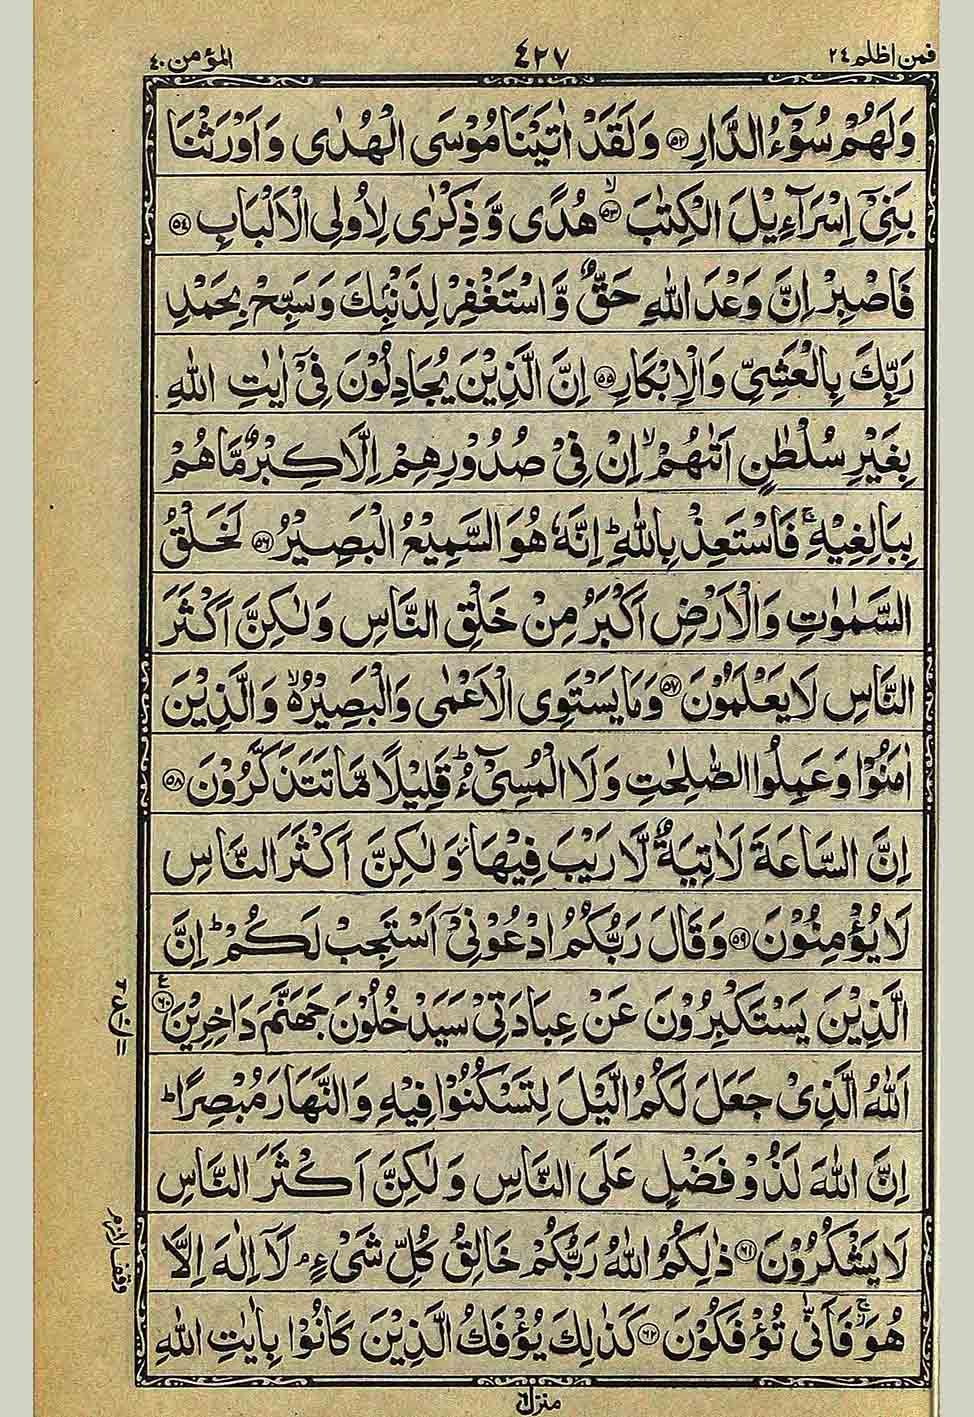 فمن اظلم ٢٤
٤٢٧
المؤمن ٤٠
وَلَهُمْ سُوْٓءُ الدَّارِ ﴿٥٢﴾ وَلَقَدْ اٰتَيْنَا مُوْسَى الْهُدٰى وَاَوْرَثْنَا
بَنِيْٓ اِسْرَآءِيْلَ الْكِتٰبَ ﴿٥٣﴾ۙ هُدًى وَّذِكْرٰى لِاُولِى الْاَلْبَابِ ﴿٥٤﴾
فَاصْبِرْ اِنَّ وَعْدَ اللّٰهِ حَقٌّ وَّاسْتَغْفِرْ لِذَنْۢبِكَ وَسَبِّحْ بِحَمْدِ
رَبِّكَ بِالْعَشِيِّ وَالْاِبْكَارِ ﴿٥٥﴾ اِنَّ الَّذِيْنَ يُجَادِلُوْنَ فِيْٓ اٰيٰتِ اللّٰهِ
بِغَيْرِ سُلْطٰنٍ اَتٰىهُمْ ۙ اِنْ فِيْ صُدُوْرِهِمْ اِلَّا كِبْرٌ مَّا هُمْ
بِبَالِغِيْهِ ۚ فَاسْتَعِذْ بِاللّٰهِ ؕ اِنَّهٗ هُوَ السَّمِيْعُ الْبَصِيْرُ ﴿٥٦﴾ لَخَلْقُ
السَّمٰوٰتِ وَالْاَرْضِ اَكْبَرُ مِنْ خَلْقِ النَّاسِ وَلٰكِنَّ اَكْثَرَ
النَّاسِ لَا يَعْلَمُوْنَ ﴿٥٧﴾ وَمَا يَسْتَوِى الْاَعْمٰى وَالْبَصِيْرُ ۙ وَالَّذِيْنَ
اٰمَنُوْا وَعَمِلُوا الصّٰلِحٰتِ وَلَا الْمُسِيْٓءُ ؕ قَلِيْلًا مَّا تَتَذَكَّرُوْنَ ﴿٥٨﴾
اِنَّ السَّاعَةَ لَاٰتِيَةٌ لَّا رَيْبَ فِيْهَا وَلٰكِنَّ اَكْثَرَ النَّاسِ
لَا يُؤْمِنُوْنَ ﴿٥٩﴾ وَقَالَ رَبُّكُمُ ادْعُوْنِيْٓ اَسْتَجِبْ لَكُمْ ؕ اِنَّ
الَّذِيْنَ يَسْتَكْبِرُوْنَ عَنْ عِبَادَتِيْ سَيَدْخُلُوْنَ جَهَنَّمَ دَاخِرِيْنَ ﴿٦٠﴾
اَللّٰهُ الَّذِيْ جَعَلَ لَكُمُ الَّيْلَ لِتَسْكُنُوْا فِيْهِ وَالنَّهَارَ مُبْصِرًا ؕ
اِنَّ اللّٰهَ لَذُوْ فَضْلٍ عَلَى النَّاسِ وَلٰكِنَّ اَكْثَرَ النَّاسِ
لَا يَشْكُرُوْنَ ﴿٦١﴾ ذٰلِكُمُ اللّٰهُ رَبُّكُمْ خَالِقُ كُلِّ شَيْءٍ ۘ لَآ اِلٰهَ اِلَّا
هُوَ ۚ فَاَنّٰى تُؤْفَكُوْنَ ﴿٦٢﴾ كَذٰلِكَ يُؤْفَكُ الَّذِيْنَ كَانُوْا بِاٰيٰتِ اللّٰهِ
وقف لازم
منزل ٦